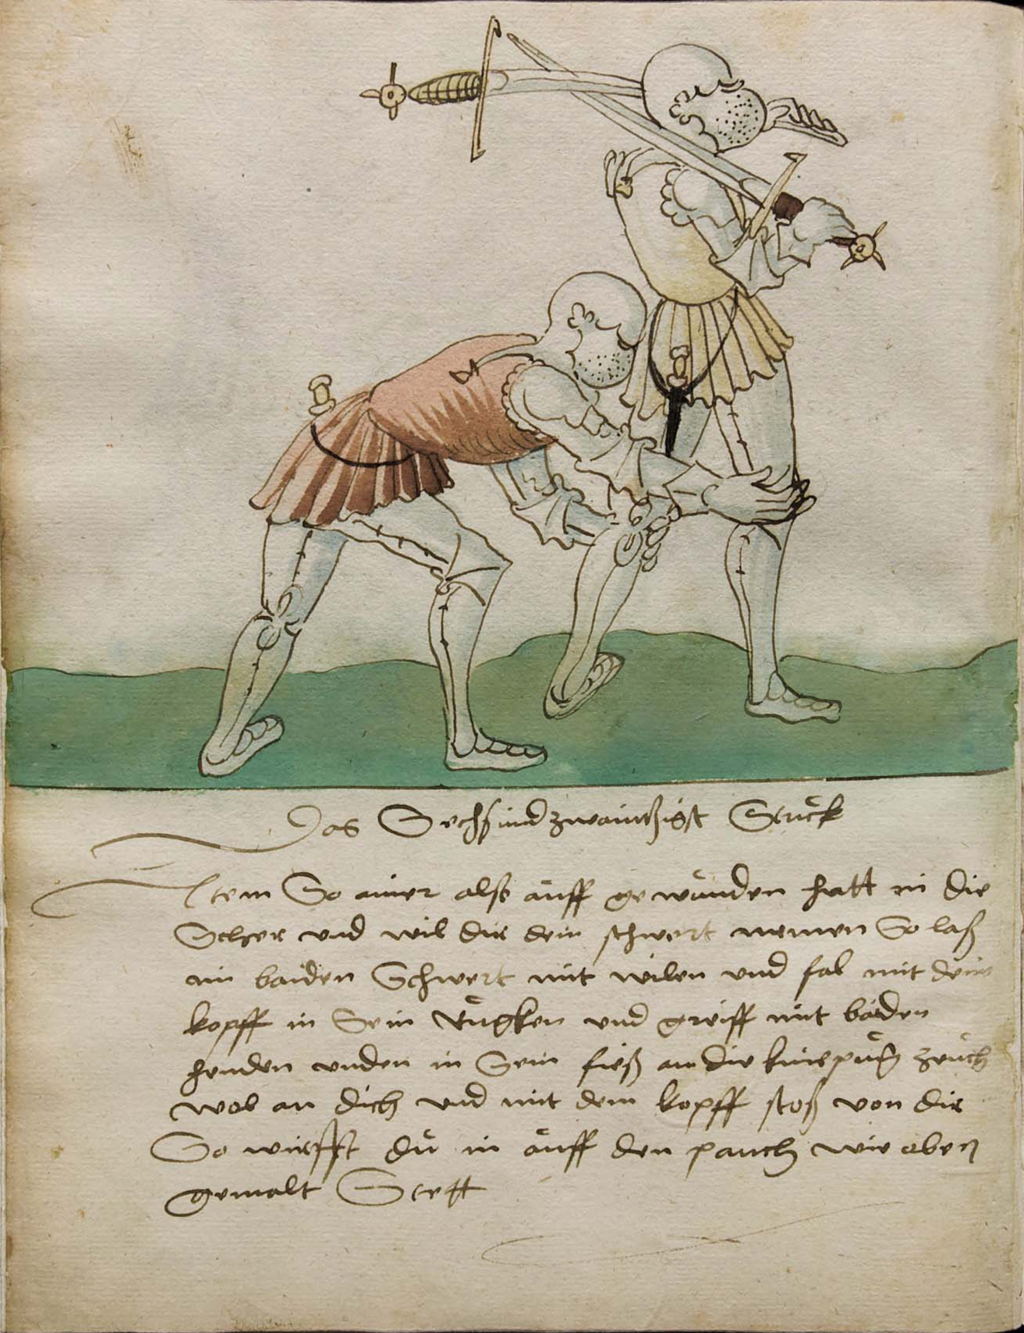 Das Sechsundzwaintzigist Stuck
Item So ainer alsß auff gewunden hatt in die
Scher und wil dir dein schwert nemen So laß
im baiden Schwert mit wilen und fal mit deim
kopff in Sein Rugken und greiff mit baiden
henden unden in Sein fieß an die kniepug zeuch
wol an dich und mit dem kopff stoß von dir
So wirfst du in auff den pauch wie oben
gemalt Stett